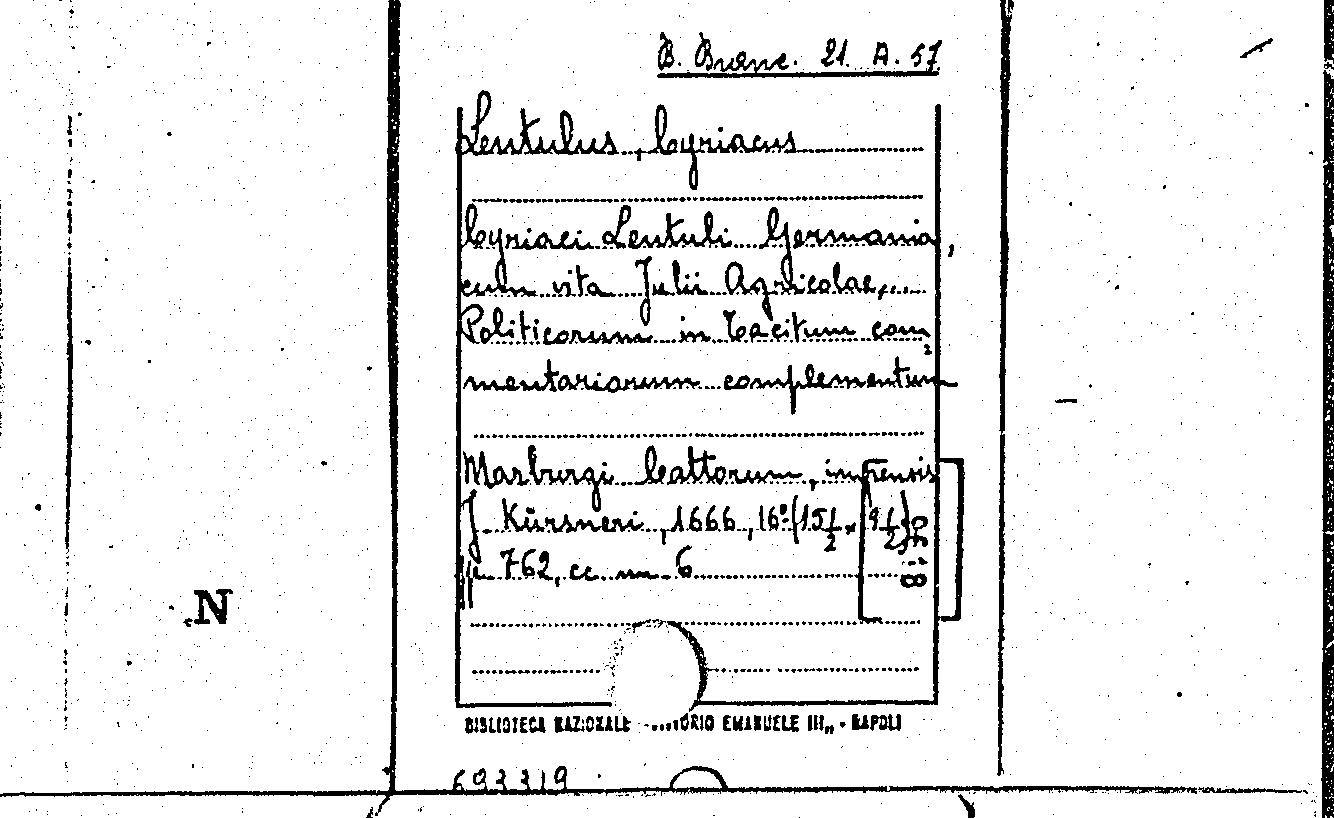 B. Branc. 21. A. 57
Lentulus, Cyriacus
Cyriaci Lentuli Germania,
cum vita Julii Agricolae,..
Politicorum in Tacitum com
mentariorum complementum
Marburgi Cattorum, impensis
J. Kürsneri, 1666, 16º (15 1/2 x 9 1/2)
pp. 762, cc. nn. 6
N
BIBLIOTECA NAZIONALE ORIO EMANUELE III„ - NAPOLI
693319